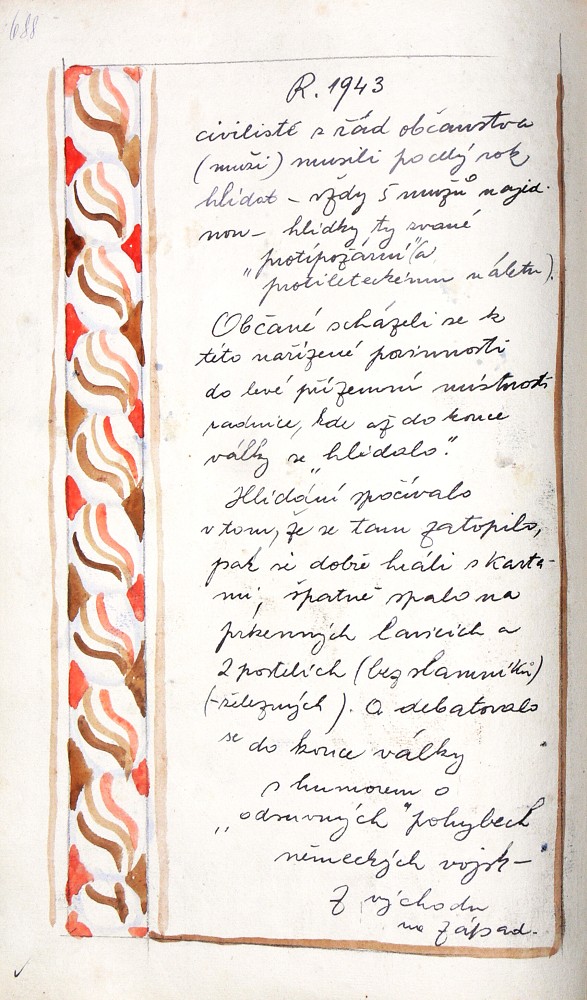 688
R. 1943
civilisté z řad občanstva
(muži) musili po celý rok
hlídat – vždy 5 mužů najed-
nou – hlídky ty zvané
„protipožární" (a
protileteckému náletu).
Občané scházeli se k
této nařízené povinnosti
do levé přízemní místnosti
radnice, kde až do konce
války se „hlídalo".
Hlídání spočívalo
v tom, že se tam zatopilo,
pak se dobře hráli s karta-
mi, špatně spalo na
prkenných lavicích a
2 postelích (bez slamníků)
(-železných). A debatovalo
se do konce války
s humorem o
„odsuvných" pohybech
německých vojsk –
z východu
na západ.